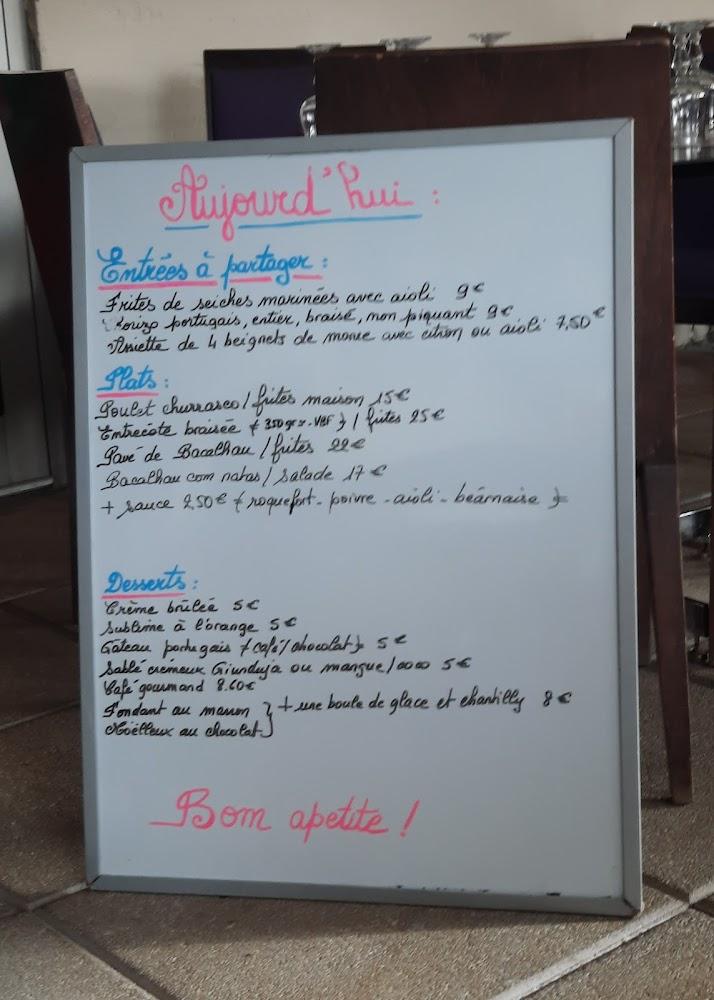 Aujourd'hui :
Entrées à partager :
Frites de seiches marinées avec aioli 9€
Chouriço portugais, entier, braisé, non piquant 9€
Assiette de 4 beignets de morue avec citron ou aioli 7,50€
Plats :
Poulet churrasco / frites maison 15€
Entrecôte braisée ( 350gr - VBF ) / frites 25€
Pavé de Bacalhau / frites 22€
Bacalhau com natas / salade 17€
+ sauce 2,50€ ( roquefort - poivre - aioli - béarnaise )
Desserts :
Crème brûlée 5€
Sublime à l'orange 5€
Gâteau portugais ( café / chocolat ) 5€
Sablé crémeux Gianduja ou mangue / coco 5€
Café gourmand 8.60€
Fondant au marron } + une boule de glace et chantilly 8€
Moëlleux au chocolat
Bom apetite !